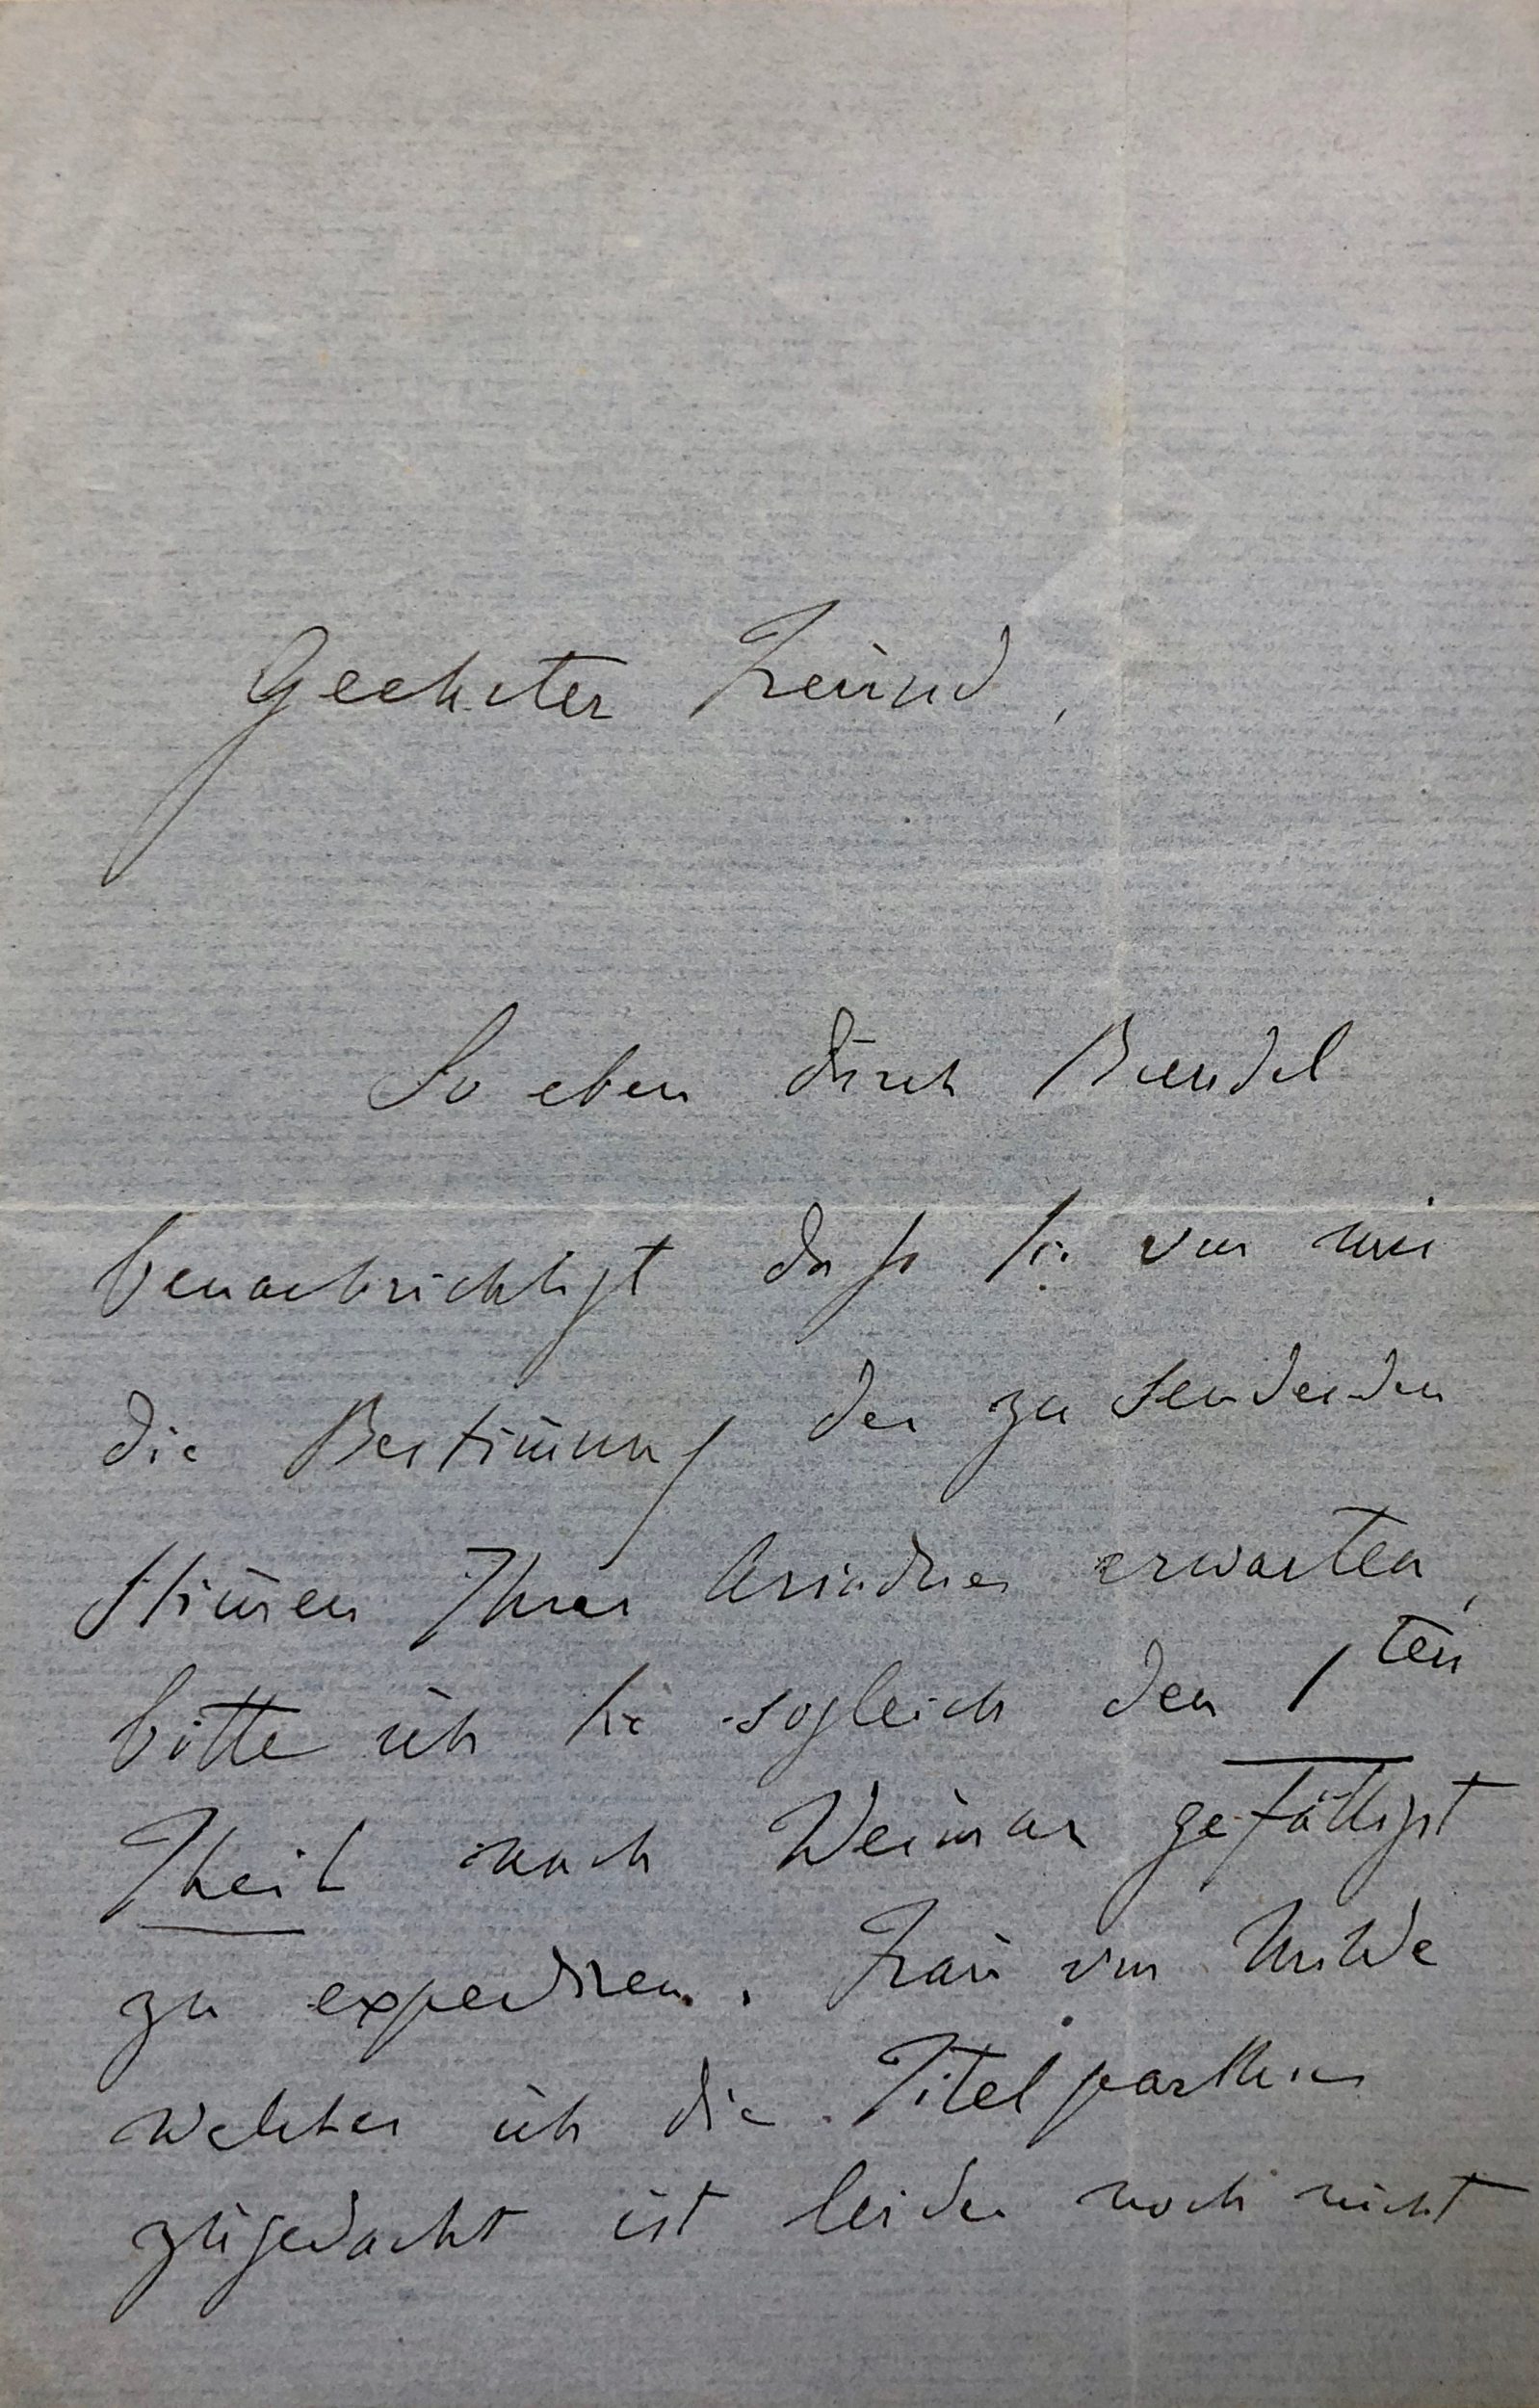 Geehrter Freund,
So eben durch Bendel
benachrichtigt dass Sie von mir
die Bestim̅ung der zu sendenden
Stim̅en Ihrer Ariadne erwarten,
bitte ich Sie sogleich den 1ten
Theil nach Weimar gefälligst
zu expediren. Frau von Milde
welcher ich die Titelparthie
zugedacht ist leider noch nicht